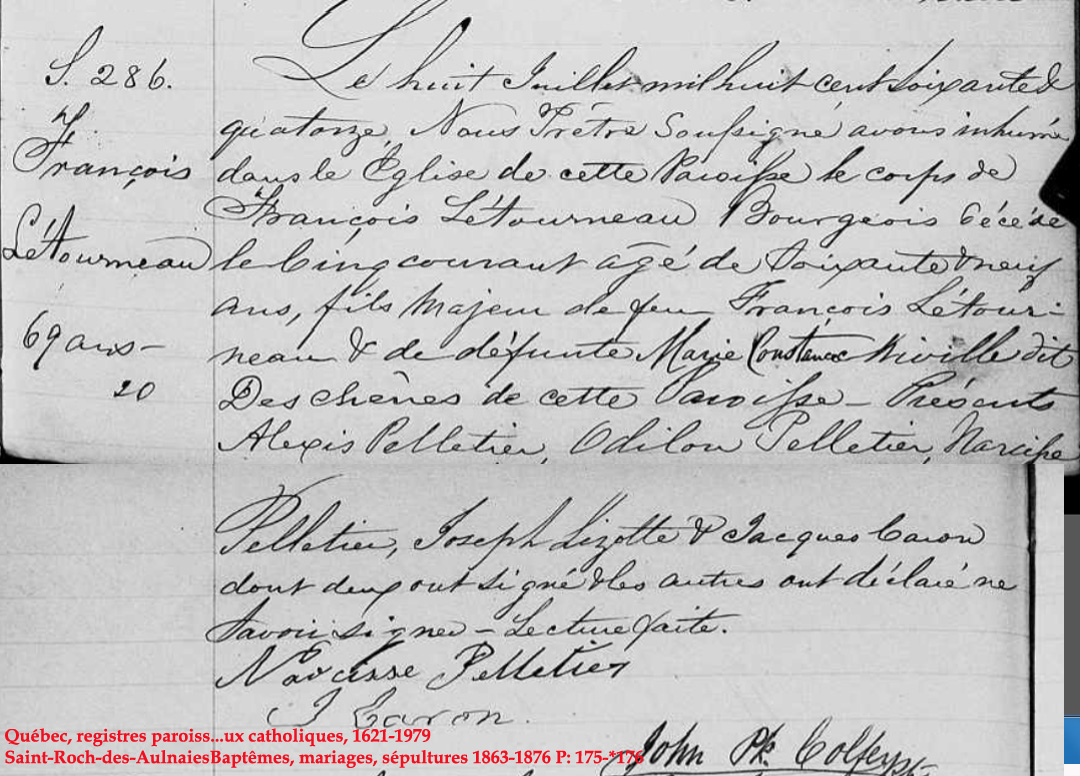 S. 286.
F.
François
Létourneau
69 ans -
20
Le huit Juillet mil huit cent soixante &
quatorze, Nous Prêtre Soussigné avons inhumé
dans le Église de cette Paroisse le corps de
François Létourneau Bourgeois décédé
le Cinq courant agé de soixante & neuf
ans, fils Majeur de feu François Létour-
neau & de défunte Marie Constance Miville dit
Deschênes de cette Paroisse - Présents
Alexis Pelletier, Odilon Pelletier, Narcisse
Pelletier, Joseph Lizotte & Jacques Caron
dont deux ont signé & les autres ont déclaré ne
savoir signer - Lecture faite.
Narcisse Pelletier
J Caron.
John Ph.
Québec, registres paroiss...ux catholiques, 1621-1979
Saint-Roch-des-AulnaiesBaptêmes, mariages, sépultures 1863-1876 P: 175-*176